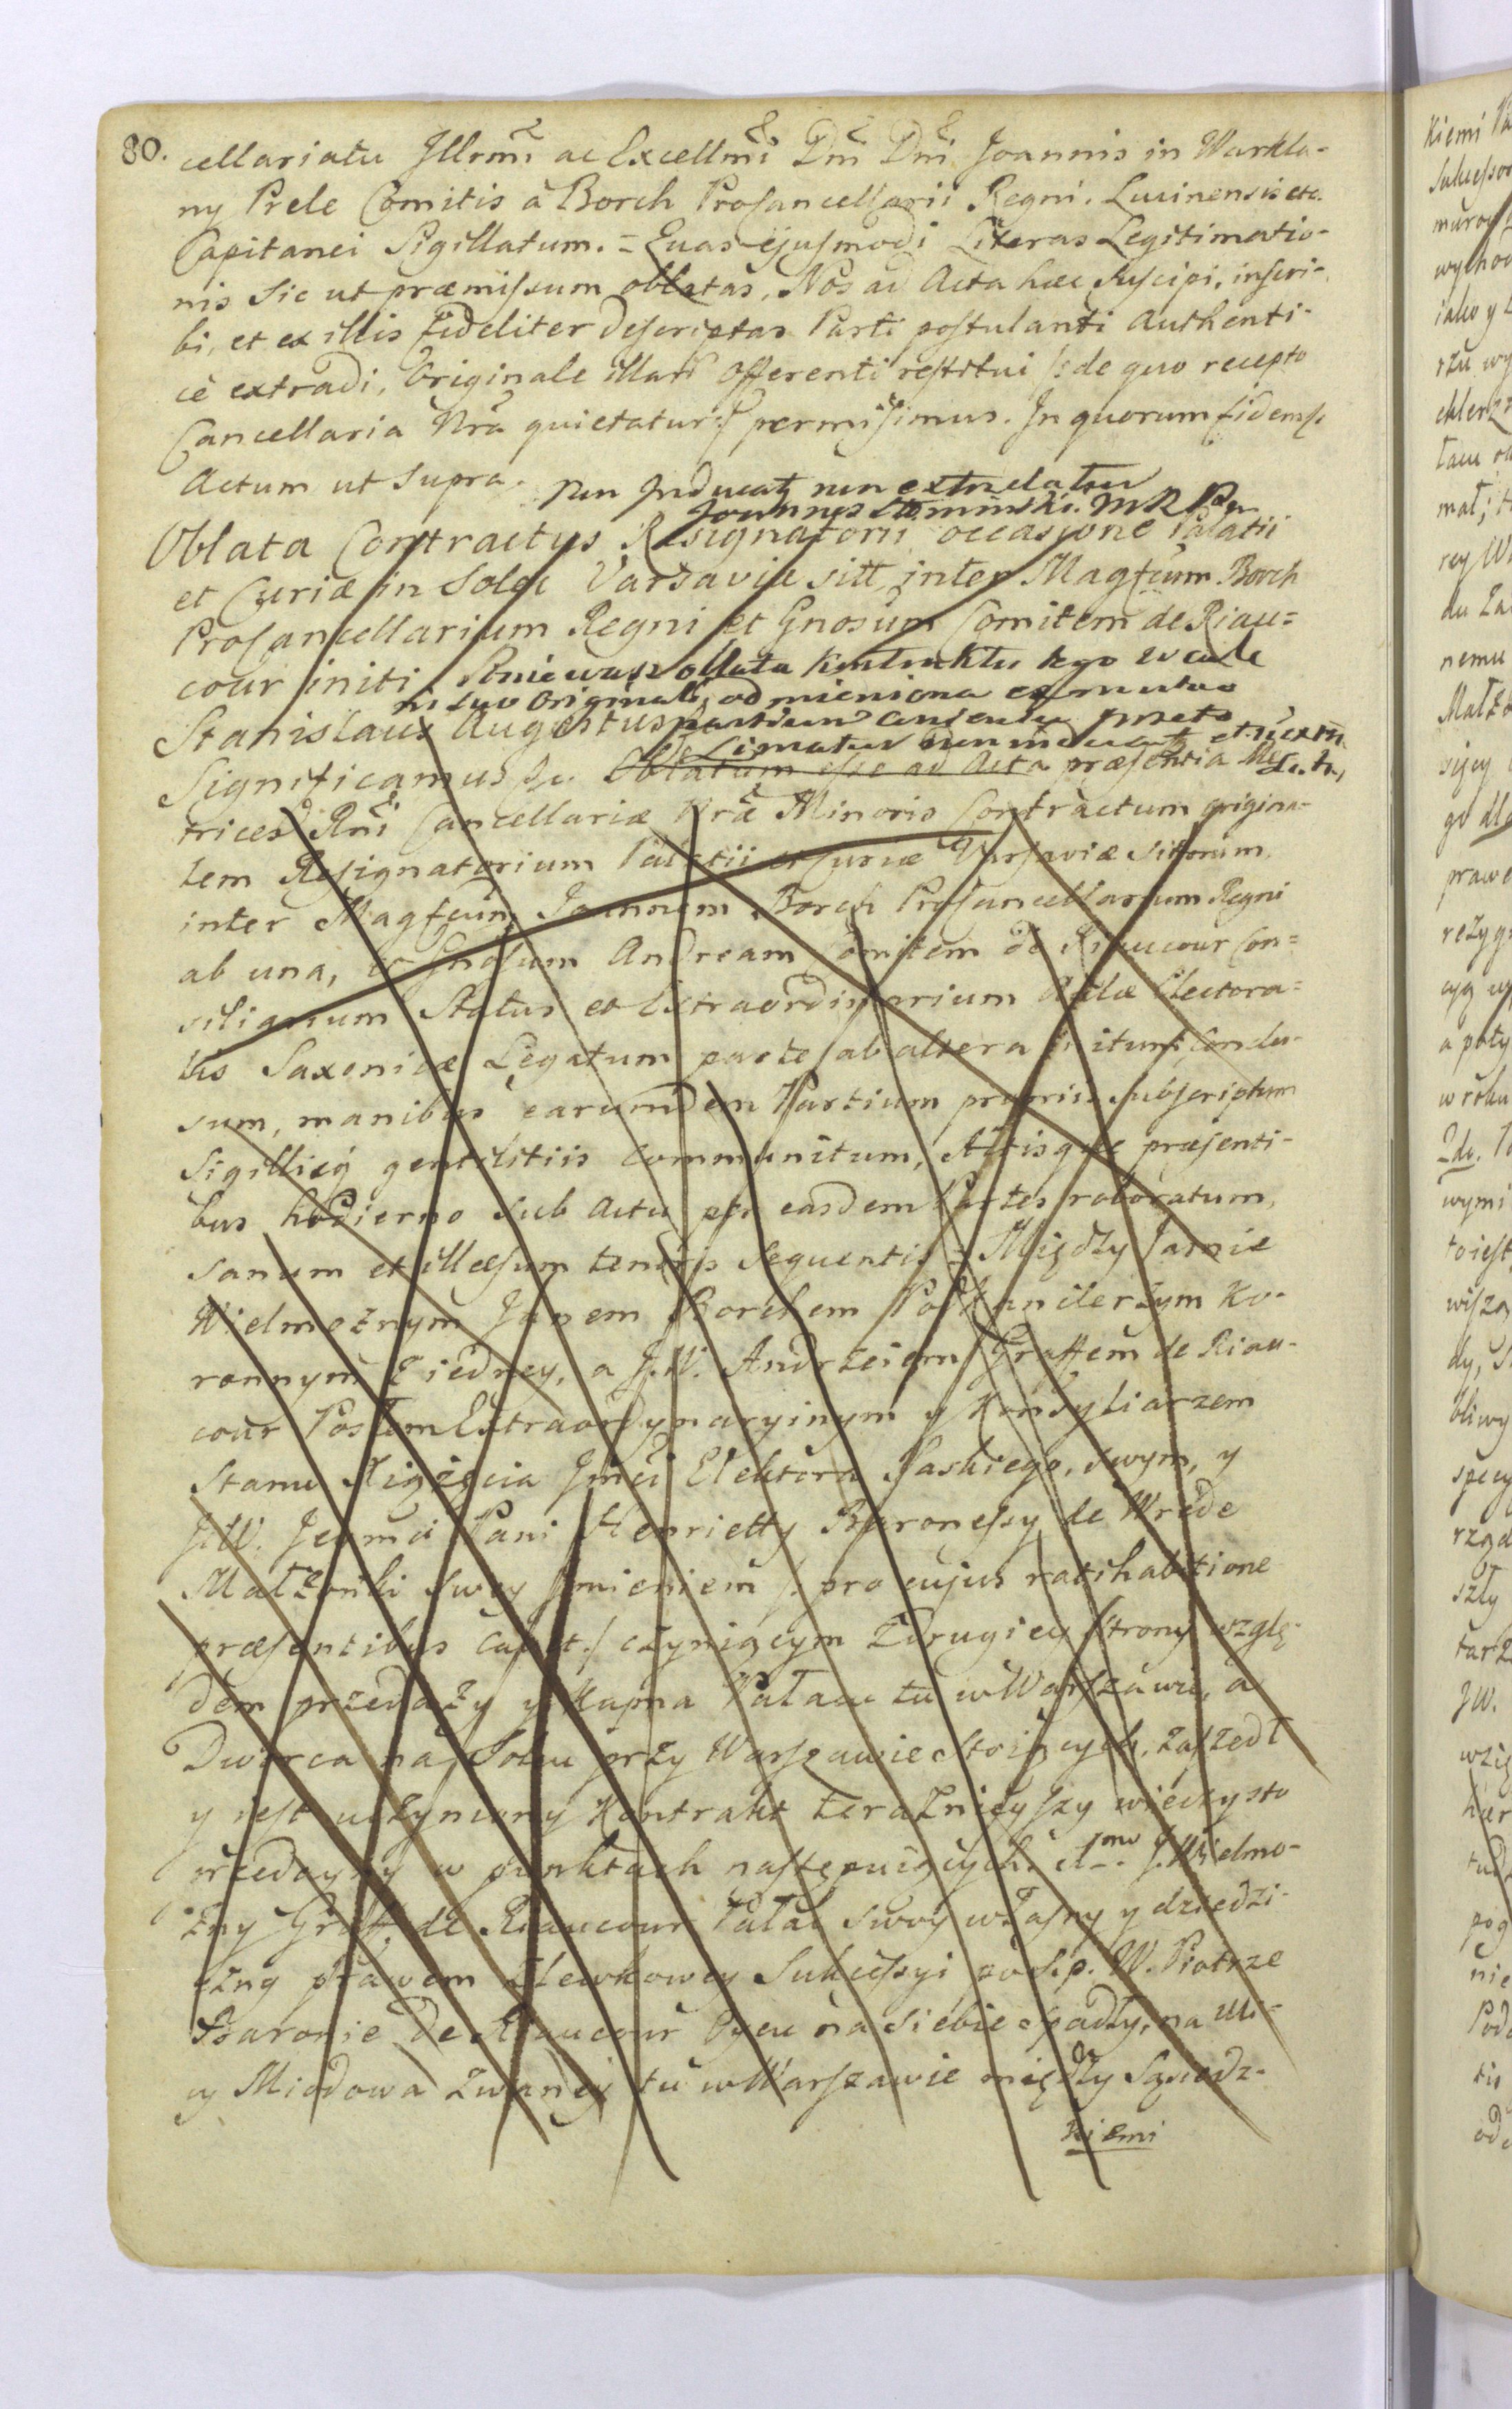 80.
cellariatu Jllrmi ac Excellmi Dni Dni Joannis in Warkla-
ny Prele Comitis à Borch Procancellarii Regni. Lucinensis etc.
Capitanei Sigillatum. = Quas ejusmodi Literas Legitimatio-
nis sic ut præmissum oblatas, Nos ad Acta hæc suscipi, inscri-
bi, et ex illis fideliter descriptas Parti postulanti Authenti-
cè extradi, Originale illarum Offerenti restitui /: de quo recepto
Cancellaria Nra quietatur :/ permisimus. In quorum fidem /.
Actum ut supra.
non Inducatur non extradatur
Joannes
Oblata Contractus Resignatorii occasione Palatii
et Curiæ in Solec Varsaviæ sitt. inter Magfcum Borch
Procancellarium Regni et Gnosum Comitem de Riau=
cour initi
Poniewasz oblata kontraktu tego w cale
originali, odmieniona ex mutuo
Stanislaus Augustus
partium consensu przeto
Significamus &c. Oblatum esse ad Acta præsentia Me-
trices Rni Cancellariæ Nræ Minoris Contractum origina-
lem Resignatorium Palatii et Curiæ Varsaviæ sitorum
inter Magfcum Joannem Borch Procancellarium Regni
ab una, et Gnosum Andream Comitem de Riaucour Con=
siliarium Status et Extraordinarium Aulæ Electora=
lis Saxonicæ Legatum parte ab altera initum, conclu-
sum, manibus earumdem Partium propriis subscriptum
Sigillisq gentilitiis communitum, Actisque præsenti-
bus hodierno sub actu per easdem Partes roboratum,
sanum et illæsum tenoris sequentis = Między Jaśnie
Wielmożnym Janem Borchem Podkanclerzym Ko-
ronnym z iedney, a J.W. Andrzeiem Graffem de Riau-
cour Posłem Extraordynaryinym y Konsyliarzem
Stanu Xiążęcia Jmci Elektora Saskiego, swym, y
J.W. Jeymci Pani Henrietty Baronessy de Wrede
Małżonki swey Jmieniem /: pro cujus ratihabitione
præsentibus cavet :/ czyniącym z drugiey strony wzglę-
dem przedaży y kupna Pałacu tu w Warszawie, a
Dworca na Solcu przy Warszawie stoiących, zaszedł
y iest uczyniony Kontrakt teraźnieyszy wieczysto
przedayny w punktach następuiących. 1mo J. Wielmo-
żny Graff de Riaucour Pałac swoy własny y dziedzi-
czny prawem Sukcessyi po ś.p. W. Piotrze
Baronie de Riaucour Oycu na siebie spadły, na uli-
cy Miodowa zwaney tu w Warszawie między Sąsiedz-
kiemi